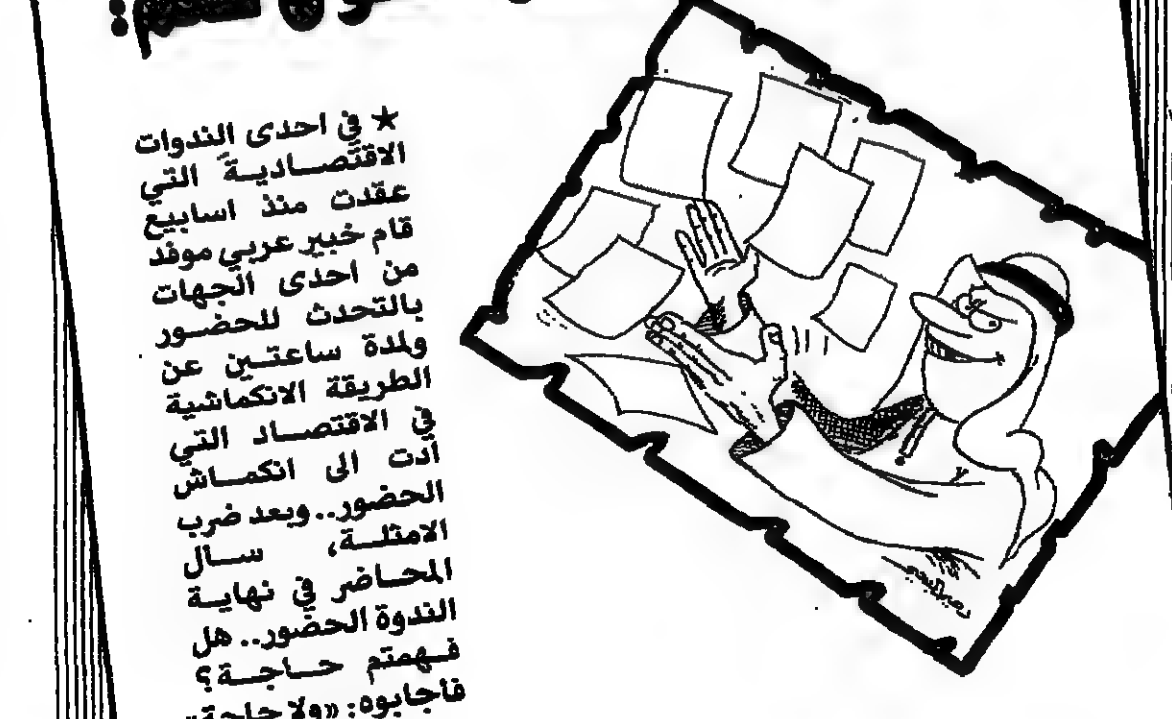 ★ في احدى الندوات
الاقتصــاديــة التي
عقدت منذ اسابيع
قام خبير عربي موفد
من احدى الجهات
بالتحدث للحضـور
ولمدة ساعتـين عن
الطريقة الانكماشية
في الاقتصـاد التي
أدت الى انكمــاش
الحضور.. وبعد ضرب
الامثلــة، ســال
المحــاضر في نهايــة
الندوة الحضور.. هل
فــهمتم حــاجــة؟
فأجابوه: «ولا حاجة»